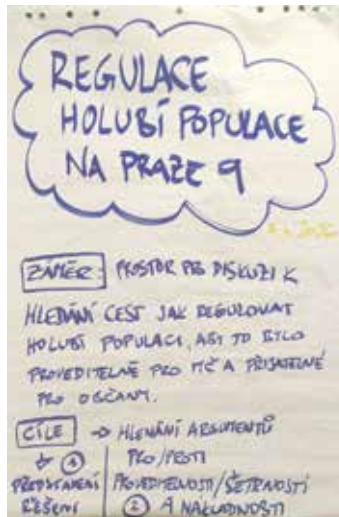 REGULACE
HOLUBÍ POPULACE
NA PRAZE 9
ZÁMĚR: PROSTOR PRO DISKUZI K
HLEDÁNÍ CEST JAK REGULOVAT
HOLUBÍ POPULACI, ABY TO BYLO
PROVEDITELNÉ PRO MČ A PŘIJATELNÉ
PRO OBČANY.
CÍLE → HLEDÁNÍ ARGUMENTŮ
↓ ① PRO/PROTI
PŘEDSTAVENÍ PROVEDITELNOSTI/ŠETRNOSTI
ŘEŠENÍ ② A NÁKLADNOSTI